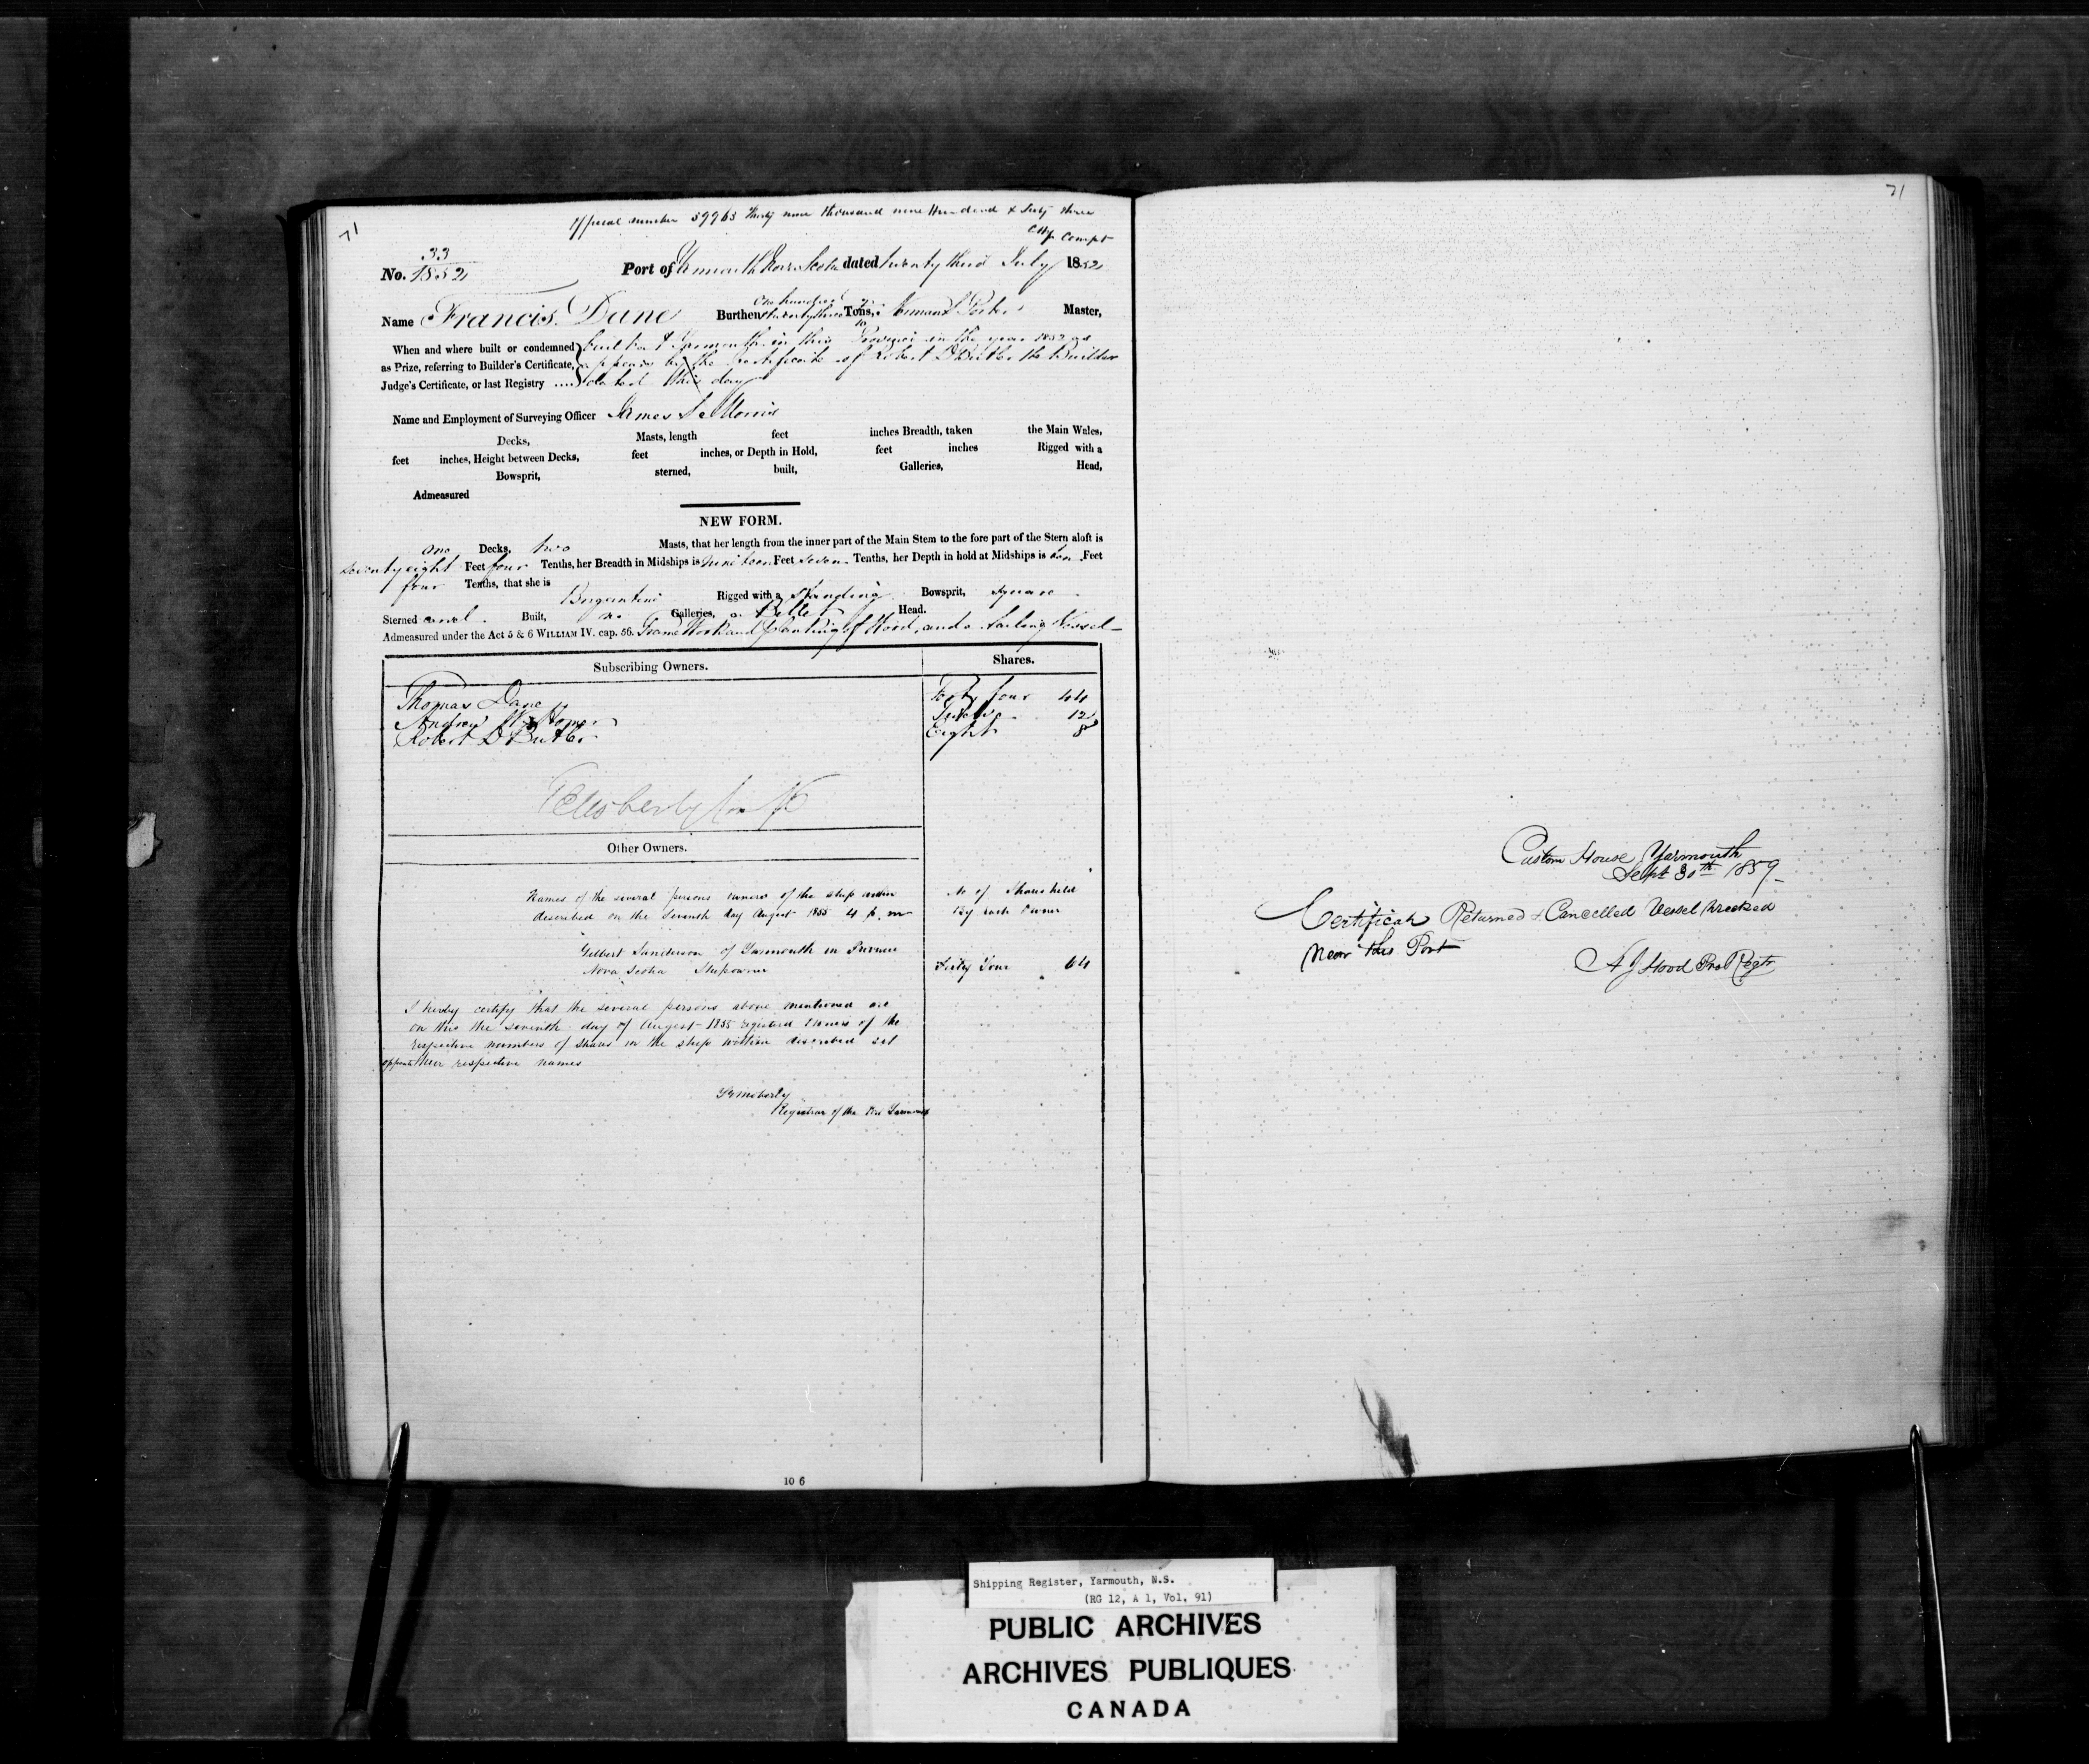 71
Official number 39963 Thirty nine thousand nine Hundred & Sixty three
Compt
No. 33
1852
Port of Yarmouth Nova Scotia dated twenty third July 1852
Name Francis Dane Burthen One hundred twenty three Tons, Master,
When and where built or condemned built at Yarmouth in this Province in the year 1852 as
as Prize, referring to Builder's Certificate, appears by the certificate of Robert D Butler the Builder
Judge's Certificate, or last Registry .... dated this day
Name and Employment of Surveying Officer James
Decks, Masts, length feet inches Breadth, taken the Main Wales,
feet inches, Height between Decks, feet inches, or Depth in Hold, feet inches Rigged with a
Bowsprit, sterned, built, Galleries, Head,
Admeasured
NEW FORM.
one Decks, two Masts, that her length from the inner part of the Main Stem to the fore part of the Stern aloft is
seventy eight Feet four Tenths, her Breadth in Midships is nineteen Feet seven Tenths, her Depth in hold at Midships is ten Feet
four Tenths, that she is Brigantine Rigged with a standing Bowsprit, square
Sterned carvel Built, no Galleries, a Billet Head.
Admeasured under the Act 5 & 6 WILLIAM IV. cap. 56. Frame Work and planking of Wood, and a Sailing Vessel
Subscribing Owners. Shares.
Thomas Dane Forty four 44
Andrew Twelve 12
Robert D Butler Eight 8
Other Owners.
Names of the several persons owners of the ship within No of Shares held
described on the Seventh day August 1855 4 p.m By each Owner
Gilbert Sanderson of Yarmouth in Province
Nova Scotia Shipowner Sixty Four 64
I hereby certify that the several persons above mentioned are
on this the seventh day of August 1855 registered Owners of the
respective numbers of shares in the ship within described set
opposite their respective names
Registrar of the Port Yarmouth
10 6
71
Custom House Yarmouth
Sept 30th 1859
Certificate Returned & Cancelled Vessel Wrecked
Near this Port
A J Hood
Shipping Register, Yarmouth, N.S.
(RG 12, A 1, Vol. 91)
PUBLIC ARCHIVES
ARCHIVES PUBLIQUES
CANADA